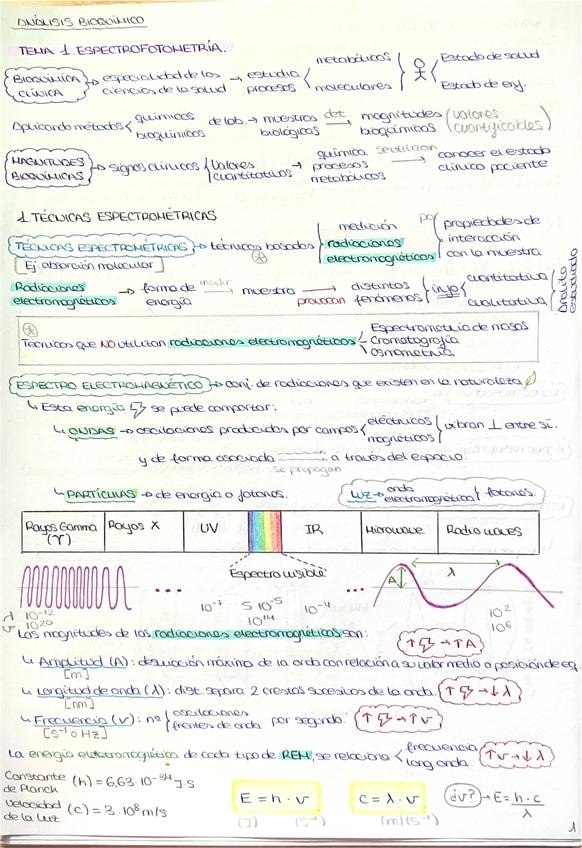 ANÁLISIS BIOQUÍMICO
TEMA 1. ESPECTROFOTOMETRÍA.
BIOQUÍMICA CLÍNICA → especialidad de las ciencias de la salud → estudia procesos < metabólicos moleculares > < Estado de salud Estado de enf.
Aplicando métodos < químicos bioquímicos de lab. → muestras biológicas det → magnitudes bioquímicas (valores cuantificables)
MAGNITUDES BIOQUÍMICAS → signos clínicos { Valores cuantitativos → química procesos metabólicos se utilizan → conocer el estado clínico paciente
1. TÉCNICAS ESPECTROMÉTRICAS
TÉCNICAS ESPECTROMÉTRICAS → técnicas basadas { medición radiaciones electromagnéticas por { propiedades de interacción con la muestra
[Ej absorción molecular]
Radiaciones electromagnéticas → forma de energía incidir → muestra → provocan distintos fenómenos { info < cuantitativa cualitativa } Analito estudiado
Técnicas que NO utilizan radiaciones electromagnéticas < Espectrometría de masas Cromatografía Osmometría
ESPECTRO ELECTROMAGNÉTICO → conj. de radiaciones que existen en la naturaleza
↳ Esta energía se puede comportar:
↳ ONDAS → oscilaciones producidas por campos { eléctricos magnéticos } vibran ⊥ entre sí.
y de forma asociada se propagan a través del espacio.
↳ PARTÍCULAS → de energía o fotones.
LUZ → onda electromagnética } fotones.
Rayos Gamma (γ) Rayos X UV IR Microwave Radio waves
Espectro visible
A λ
λ 10⁻¹² 10⁻⁷ 5·10⁻⁵ 10⁻⁴ 10²
ν 10²⁰ 10¹⁴ 10⁶
Las magnitudes de las radiaciones electromagnéticas son:
↳ Amplitud (A): desviación máxima de la onda con relación a su valor medio o posición de eq.
[m]
↑ → ↑A
↳ Longitud de onda (λ): dist. separa 2 crestas sucesivas de la onda.
[nm]
↑ → ↓λ
↳ Frecuencia (ν): nº { oscilaciones frentes de onda por segundo.
[s⁻¹ o Hz]
↑ → ↑ν
La energía electromagnética de cada tipo de REM, se relaciona < frecuencia long onda
↑ν → ↓λ
Constante de Planck (h) = 6,63·10⁻³⁴ J·s
Velocidad de la luz (c) = 3·10⁸ m/s
E = h·ν
(J) (s⁻¹)
c = λ·ν
(m/s⁻¹)
¿ν? → E = h·c / λ
1